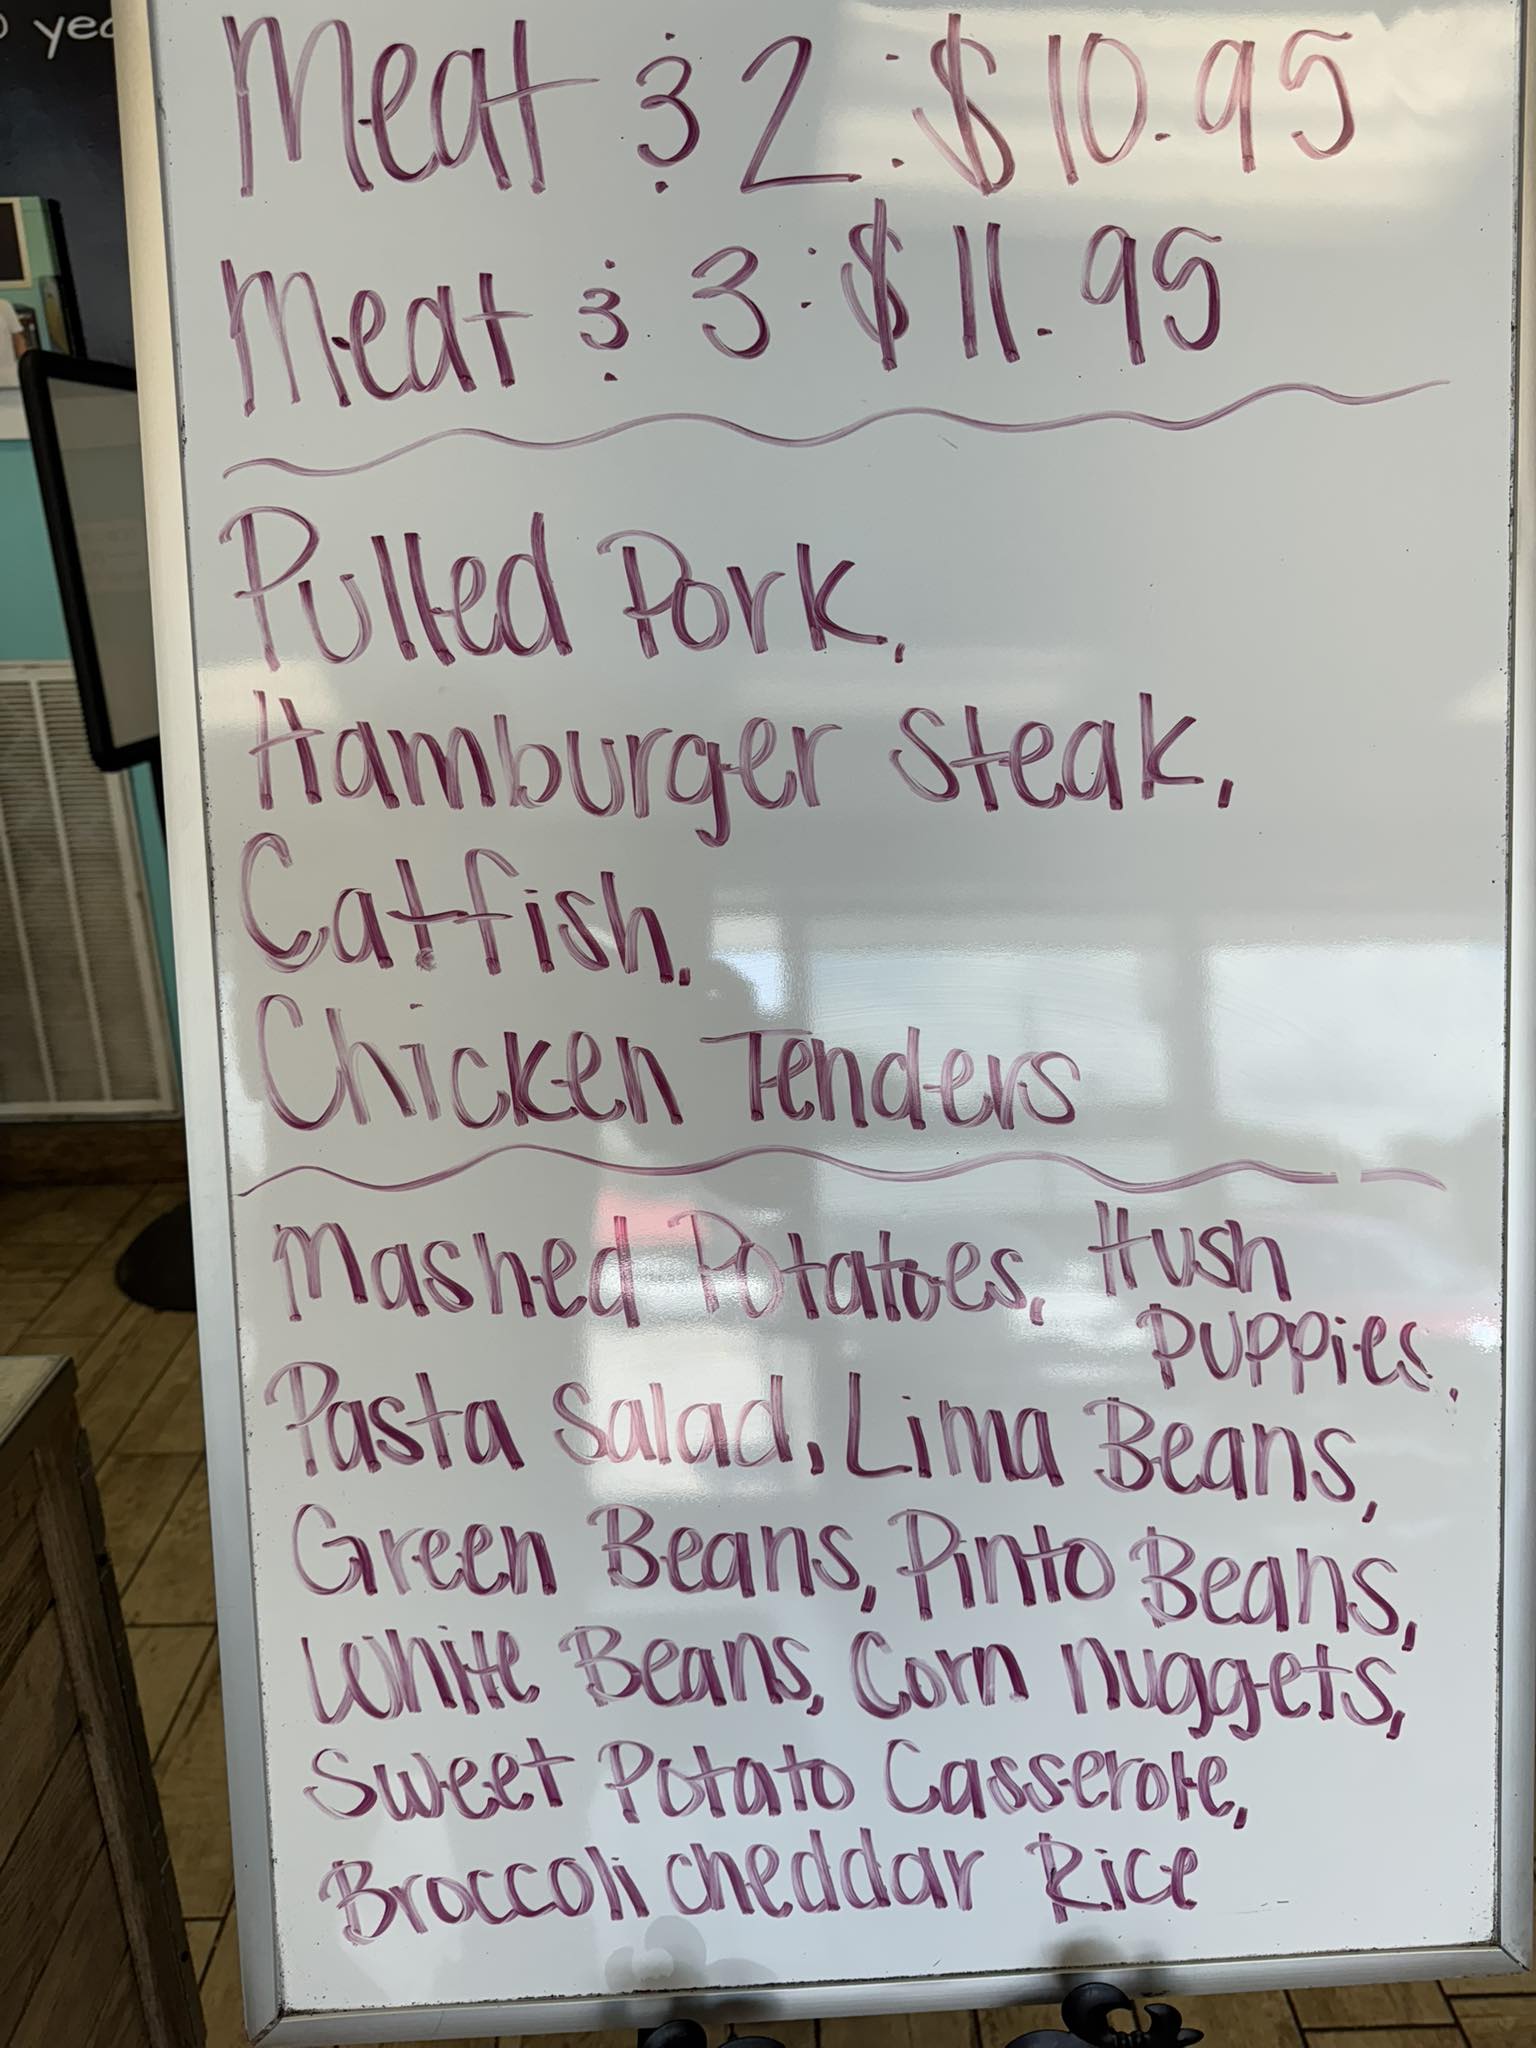 yea
Meat & 2: $10.95
Meat & 3: $11.95
Pulled Pork,
Hamburger Steak,
Catfish,
Chicken Tenders
Mashed Potatoes, Hush
Puppies,
Pasta Salad, Lima Beans,
Green Beans, Pinto Beans,
White Beans, Corn Nuggets,
Sweet Potato Casserole,
Broccoli Cheddar Rice